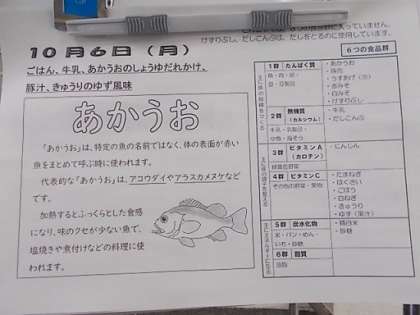 10月6日（月）
ごはん、牛乳、あかうおのしょうゆだれかけ、
豚汁、きゅうりのゆず風味
あかうお
「あかうお」は、特定の魚の名前ではなく、体の表面が赤い
魚をまとめて呼ぶ時に使われます。
代表的な「あかうお」は、アコウダイやアラスカメヌケなど
です。
加熱するとふっくらとした食感
になり、味のクセが少ない魚で、
塩焼きや煮付けなどの料理に使
われます。
入っていません。
けずりぶし、だしこんぶは、だしをとるのに使用しています。
6つの食品群
1群 たんぱく質
魚・肉・卵・
豆・豆製品
・あかうお
・豚肉
・うすあげ
・赤みそ
・白みそ
・けずりぶし
2群 無機質
（カルシウム）
牛乳・乳製品・
小魚・海そう
・牛乳
・だしこんぶ
3群 ビタミンA
（カロテン）
緑黄色野菜
・にんじん
4群 ビタミンC
その他の野菜・果物
・たまねぎ
・はくさい
・ごぼう
・白ねぎ
・きゅうり
・ゆず（果汁）
5群 炭水化物
米・パン・めん・
いも・砂糖
・精白米
・砂糖
6群 脂質
油脂